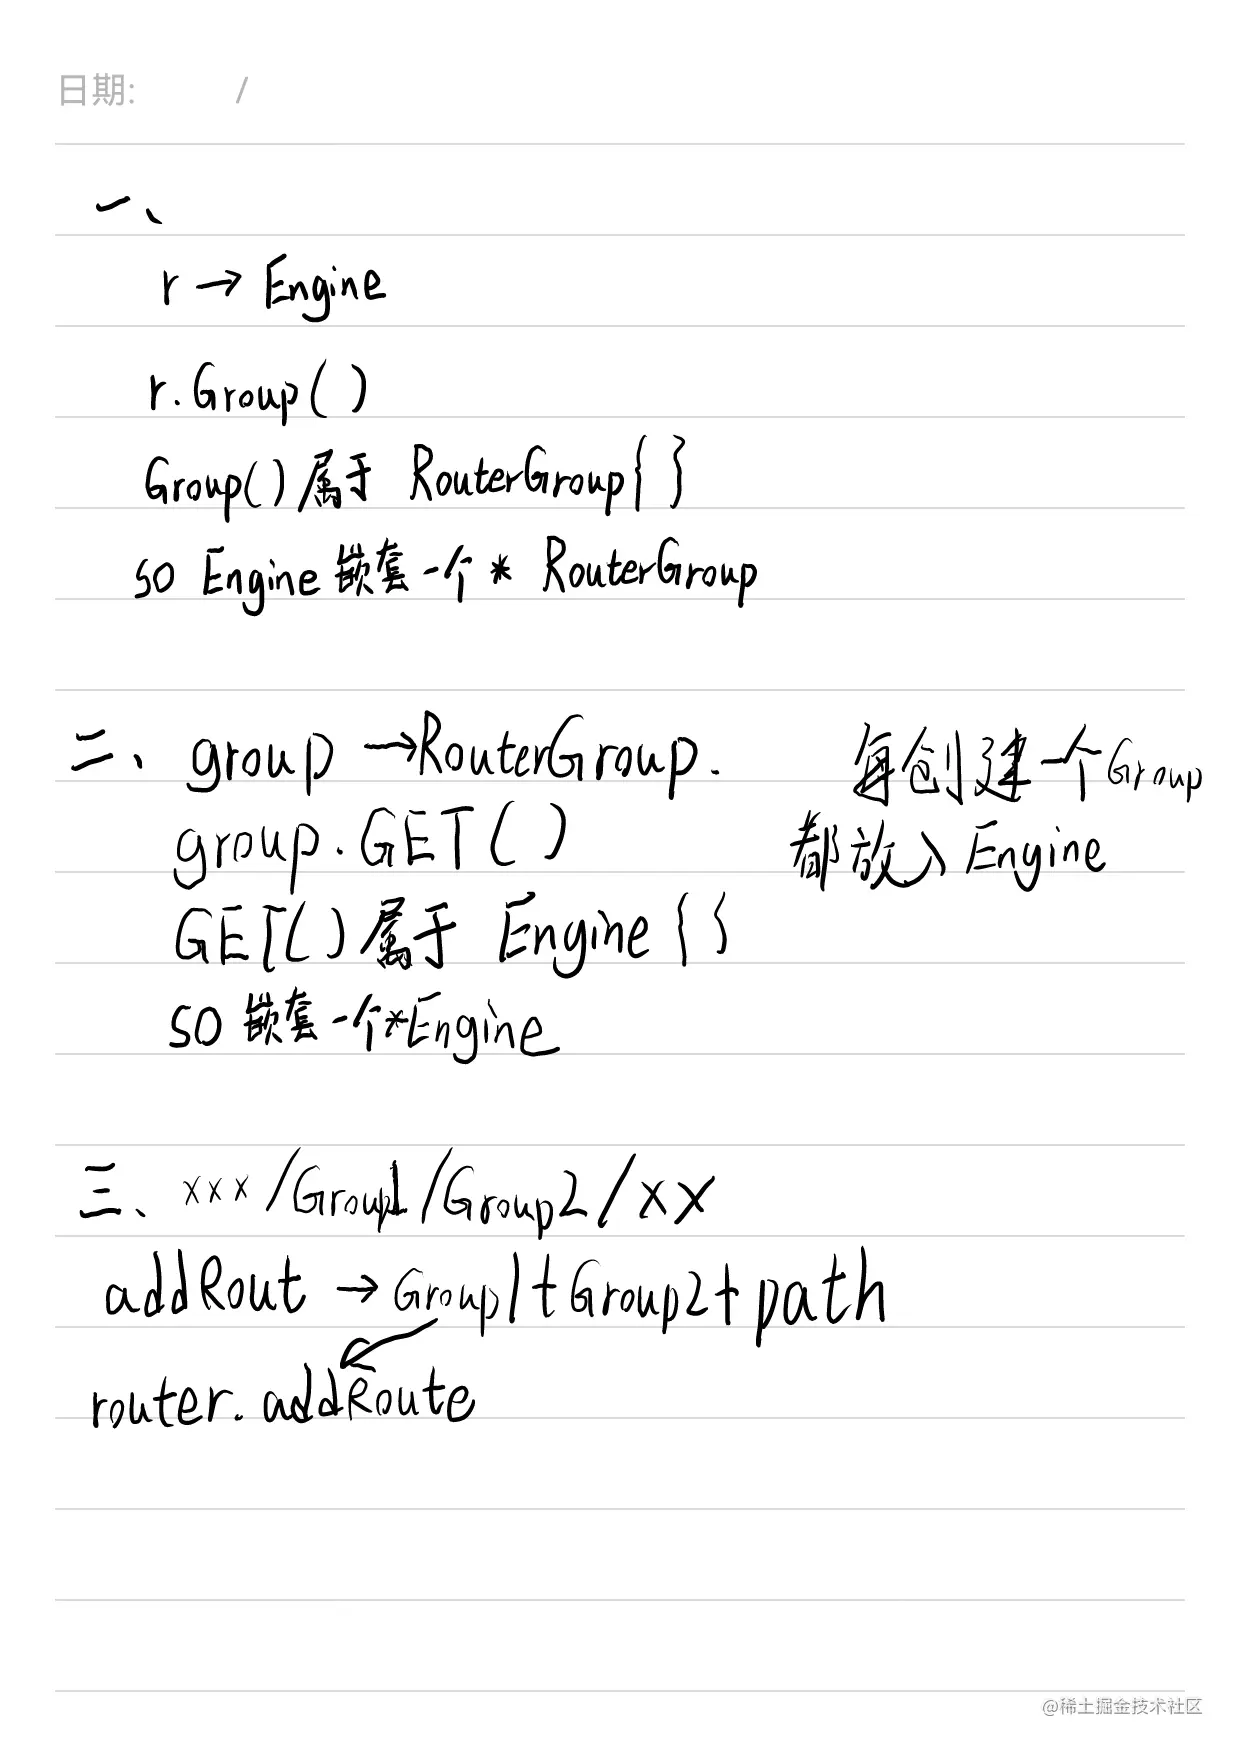 日期: /
一、
r → Engine
r.Group()
Group()属于 RouterGroup{}
so Engine 嵌套一个 * RouterGroup
二、group → RouterGroup.
每创建一个Group
group.GET()
都放入 Engine
GET()属于 Engine{}
so 嵌套一个*Engine
三、xxx/Group1/Group2/xx
addRout → Group1+Group2+path
router.addRoute
@稀土掘金技术社区